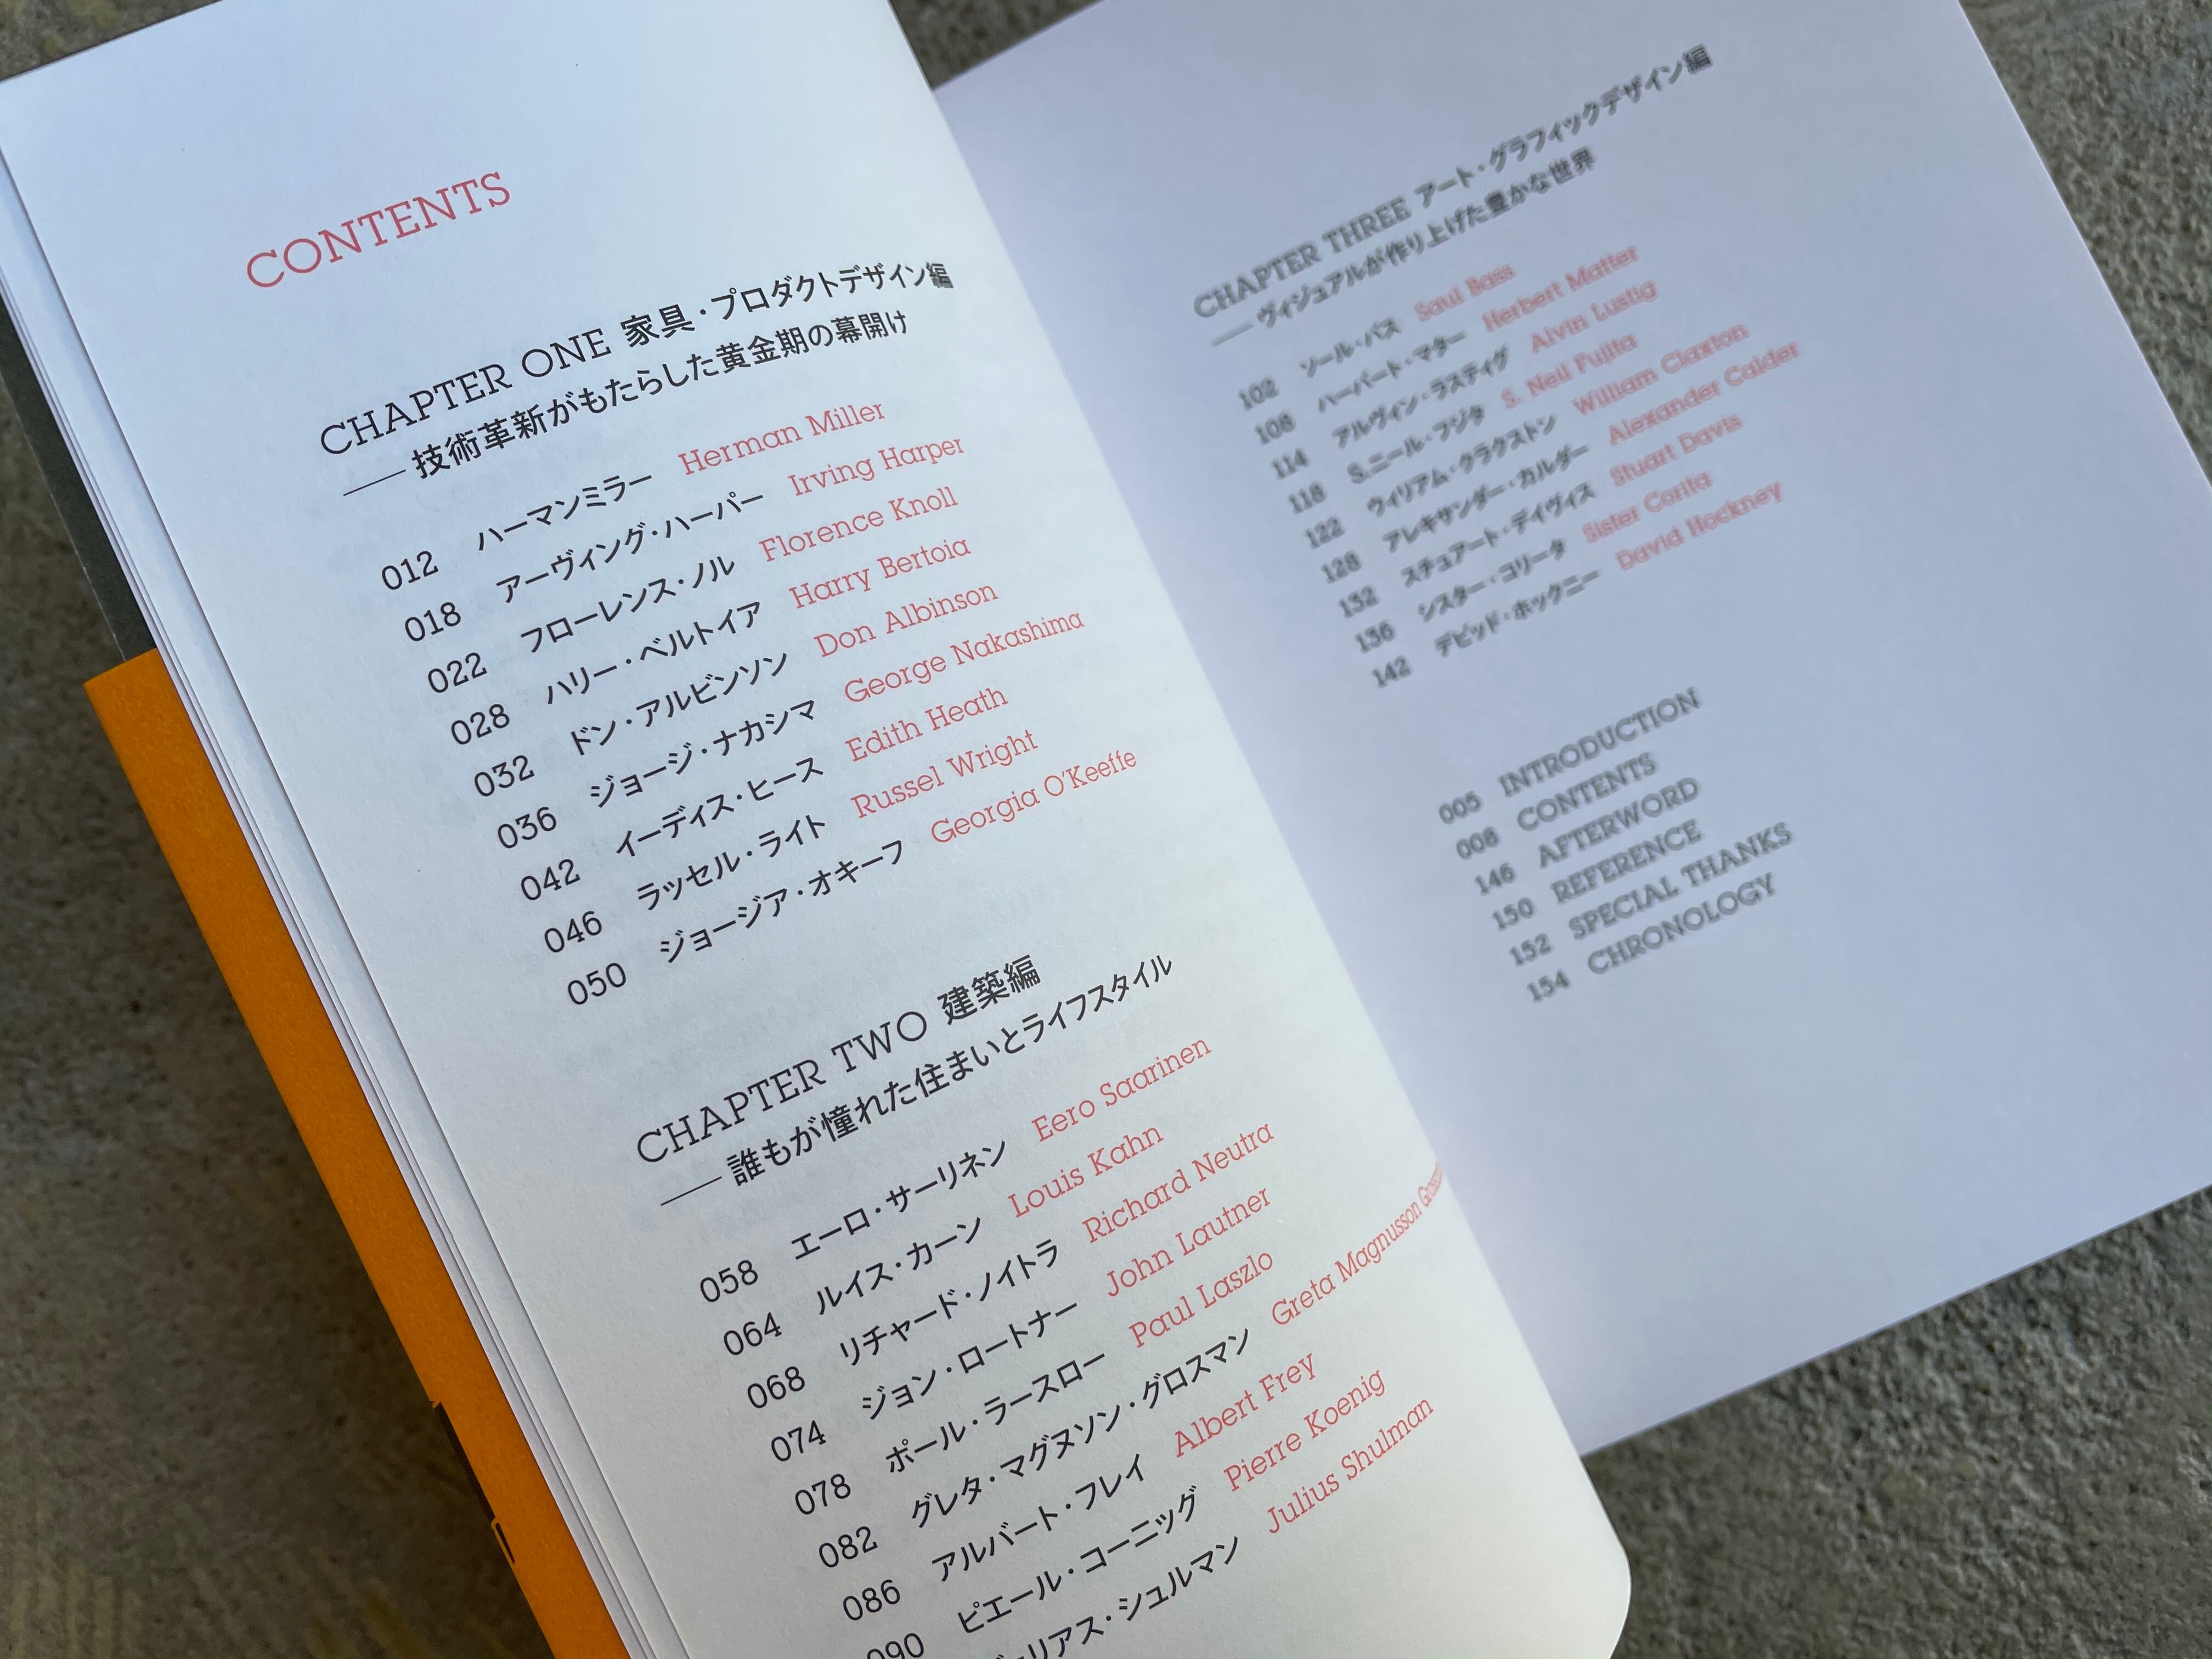 CONTENTS
CHAPTER ONE 家具・プロダクトデザイン編
── 技術革新がもたらした黄金期の幕開け
012 ハーマンミラー Herman Miller
018 アーヴィング・ハーパー Irving Harper
022 フローレンス・ノル Florence Knoll
028 ハリー・ベルトイア Harry Bertoia
032 ドン・アルビンソン Don Albinson
036 ジョージ・ナカシマ George Nakashima
042 イーディス・ヒース Edith Heath
046 ラッセル・ライト Russel Wright
050 ジョージア・オキーフ Georgia O'Keeffe
CHAPTER TWO 建築編
── 誰もが憧れた住まいとライフスタイル
058 エーロ・サーリネン Eero Saarinen
064 ルイス・カーン Louis Kahn
068 リチャード・ノイトラ Richard Neutra
074 ジョン・ロートナー John Lautner
078 ポール・ラースロー Paul Laszlo
082 グレタ・マグヌソン・グロスマン Greta Magnusson
086 アルバート・フレイ Albert Frey
090 ピエール・コーニッグ Pierre Koenig
シュルマン Julius Shulman
CHAPTER THREE アート・グラフィックデザイン編
── ヴィジュアルが作り上げた豊かな世界
102 ソール・バス Saul Bass
108 ハーバート・マター Herbert Matter
114 アルヴィン・ラスティグ Alvin Lustig
118 S.ニール・フジタ S. Neil Fujita
122 ウィリアム・クラクストン William Claxton
128 アレキサンダー・カルダー Alexander Calder
132 スチュアート・デイヴィス Stuart Davis
136 シスター・コリータ Sister Corita
142 デビッド・ホックニー David Hockney
005 INTRODUCTION
008 CONTENTS
146 AFTERWORD
150 REFERENCE
152 SPECIAL THANKS
154 CHRONOLOGY